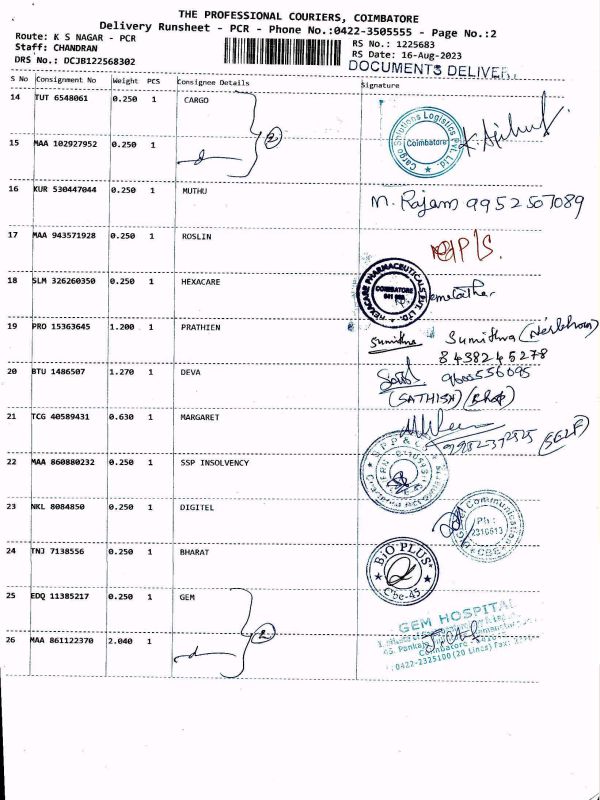 THE PROFESSIONAL COURIERS, COIMBATORE
Delivery Runsheet - PCR - Phone No.:0422-3505555 - Page No.:2
Route: K S NAGAR - PCR
Staff: CHANDRAN
DRS No.: DCJB122568302
RS No.: 1225683
RS Date: 16-Aug-2023
DOCUMENTS DELIVER
S No Consignment No Weight PCS Consignee Details Signature
14 TUT 6548061 0.250 1 CARGO
Cargo Solutions Logistics Pvt. Ltd.
Coimbatore
2
15 MAA 102927952 0.250 1
16 KUR 530447044 0.250 1 MUTHU M. Rajam 9952507089
17 MAA 943571928 0.250 1 ROSLIN
18 SLM 326260350 0.250 1 HEXACARE
HEXACARE PHARMACEUTICALS PVT. LTD.
COIMBATORE
19 PRO 15363645 1.200 1 PRATHIEN Sumithra Sumithra
8438245278
20 BTU 1486507 1.270 1 DEVA 9600556095
(SATHISH)
21 TCG 40589431 0.630 1 MARGARET
22 MAA 860880232 0.250 1 SSP INSOLVENCY
23 NKL 8084850 0.250 1 DIGITEL
Communication
Ph :
2316613
CBE
24 TNJ 7138556 0.250 1 BHARAT
BIO PLUS
Cbe-45
25 EDQ 11385217 0.250 1 GEM
2
GEM HOSPITAL
Coimbatore
0422-2325100 (20 Lines) Fax:
26 MAA 861122370 2.040 1